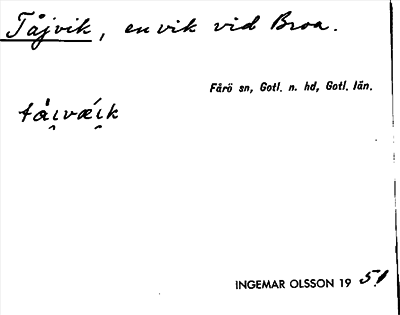 Tåjvik, en vik vid Broa.
Fårö sn, Gotl. n. hd, Gotl. län.
tåi̯vǽi̯k
INGEMAR OLSSON 19 51